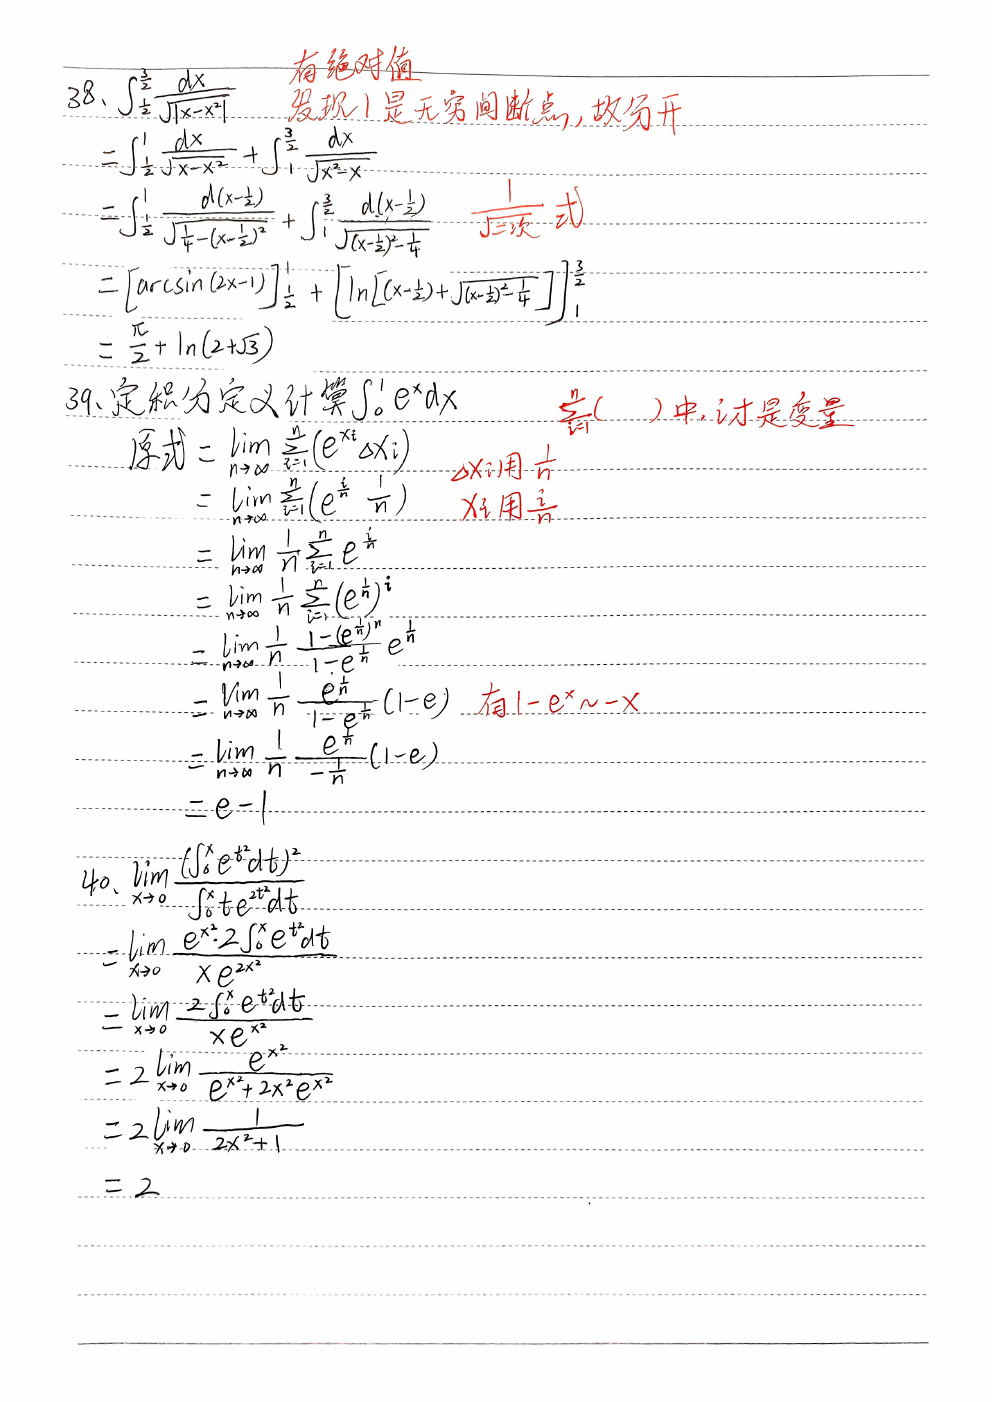 有绝对值
38、∫_{1/2}^{3/2} dx/√|x-x²| 发现1是无穷间断点,故分开
=∫_{1/2}^{1} dx/√(x-x²) + ∫_{1}^{3/2} dx/√(x²-x)
=∫_{1/2}^{1} d(x-1/2)/√(1/4-(x-1/2)²) + ∫_{1}^{3/2} d(x-1/2)/√((x-1/2)²-1/4) 1/√二次 式
=[arcsin(2x-1)]_{1/2}^{1} + [ln[(x-1/2)+√((x-1/2)²-1/4)]]_{1}^{3/2}
=π/2+ln(2+√3)
39、定积分定义计算∫_0^1 e^x dx ∑_{i=1}^{n}( )中,i才是变量
原式=lim_{n→∞} ∑_{i=1}^{n}(e^{xi} △xi) △xi用1/n
=lim_{n→∞} ∑_{i=1}^{n}(e^{i/n} 1/n) xi用i/n
=lim_{n→∞} 1/n ∑_{i=1}^{n} e^{i/n}
=lim_{n→∞} 1/n ∑_{i=1}^{n} (e^{1/n})^i
=lim_{n→∞} 1/n (1-(e^{1/n})^n)/(1-e^{1/n}) e^{1/n}
=lim_{n→∞} 1/n e^{1/n}/(1-e^{1/n}) (1-e) 有1-e^x~-x
=lim_{n→∞} 1/n e^{1/n}/(-1/n) (1-e)
=e-1
40、lim_{x→0} (∫_0^x e^{t²}dt)²/∫_0^x te^{2t²}dt
=lim_{x→0} e^{x²}·2∫_0^x e^{t²}dt/xe^{2x²}
=lim_{x→0} 2∫_0^x e^{t²}dt/xe^{x²}
=2lim_{x→0} e^{x²}/(e^{x²}+2x²e^{x²})
=2lim_{x→0} 1/(2x²+1)
=2